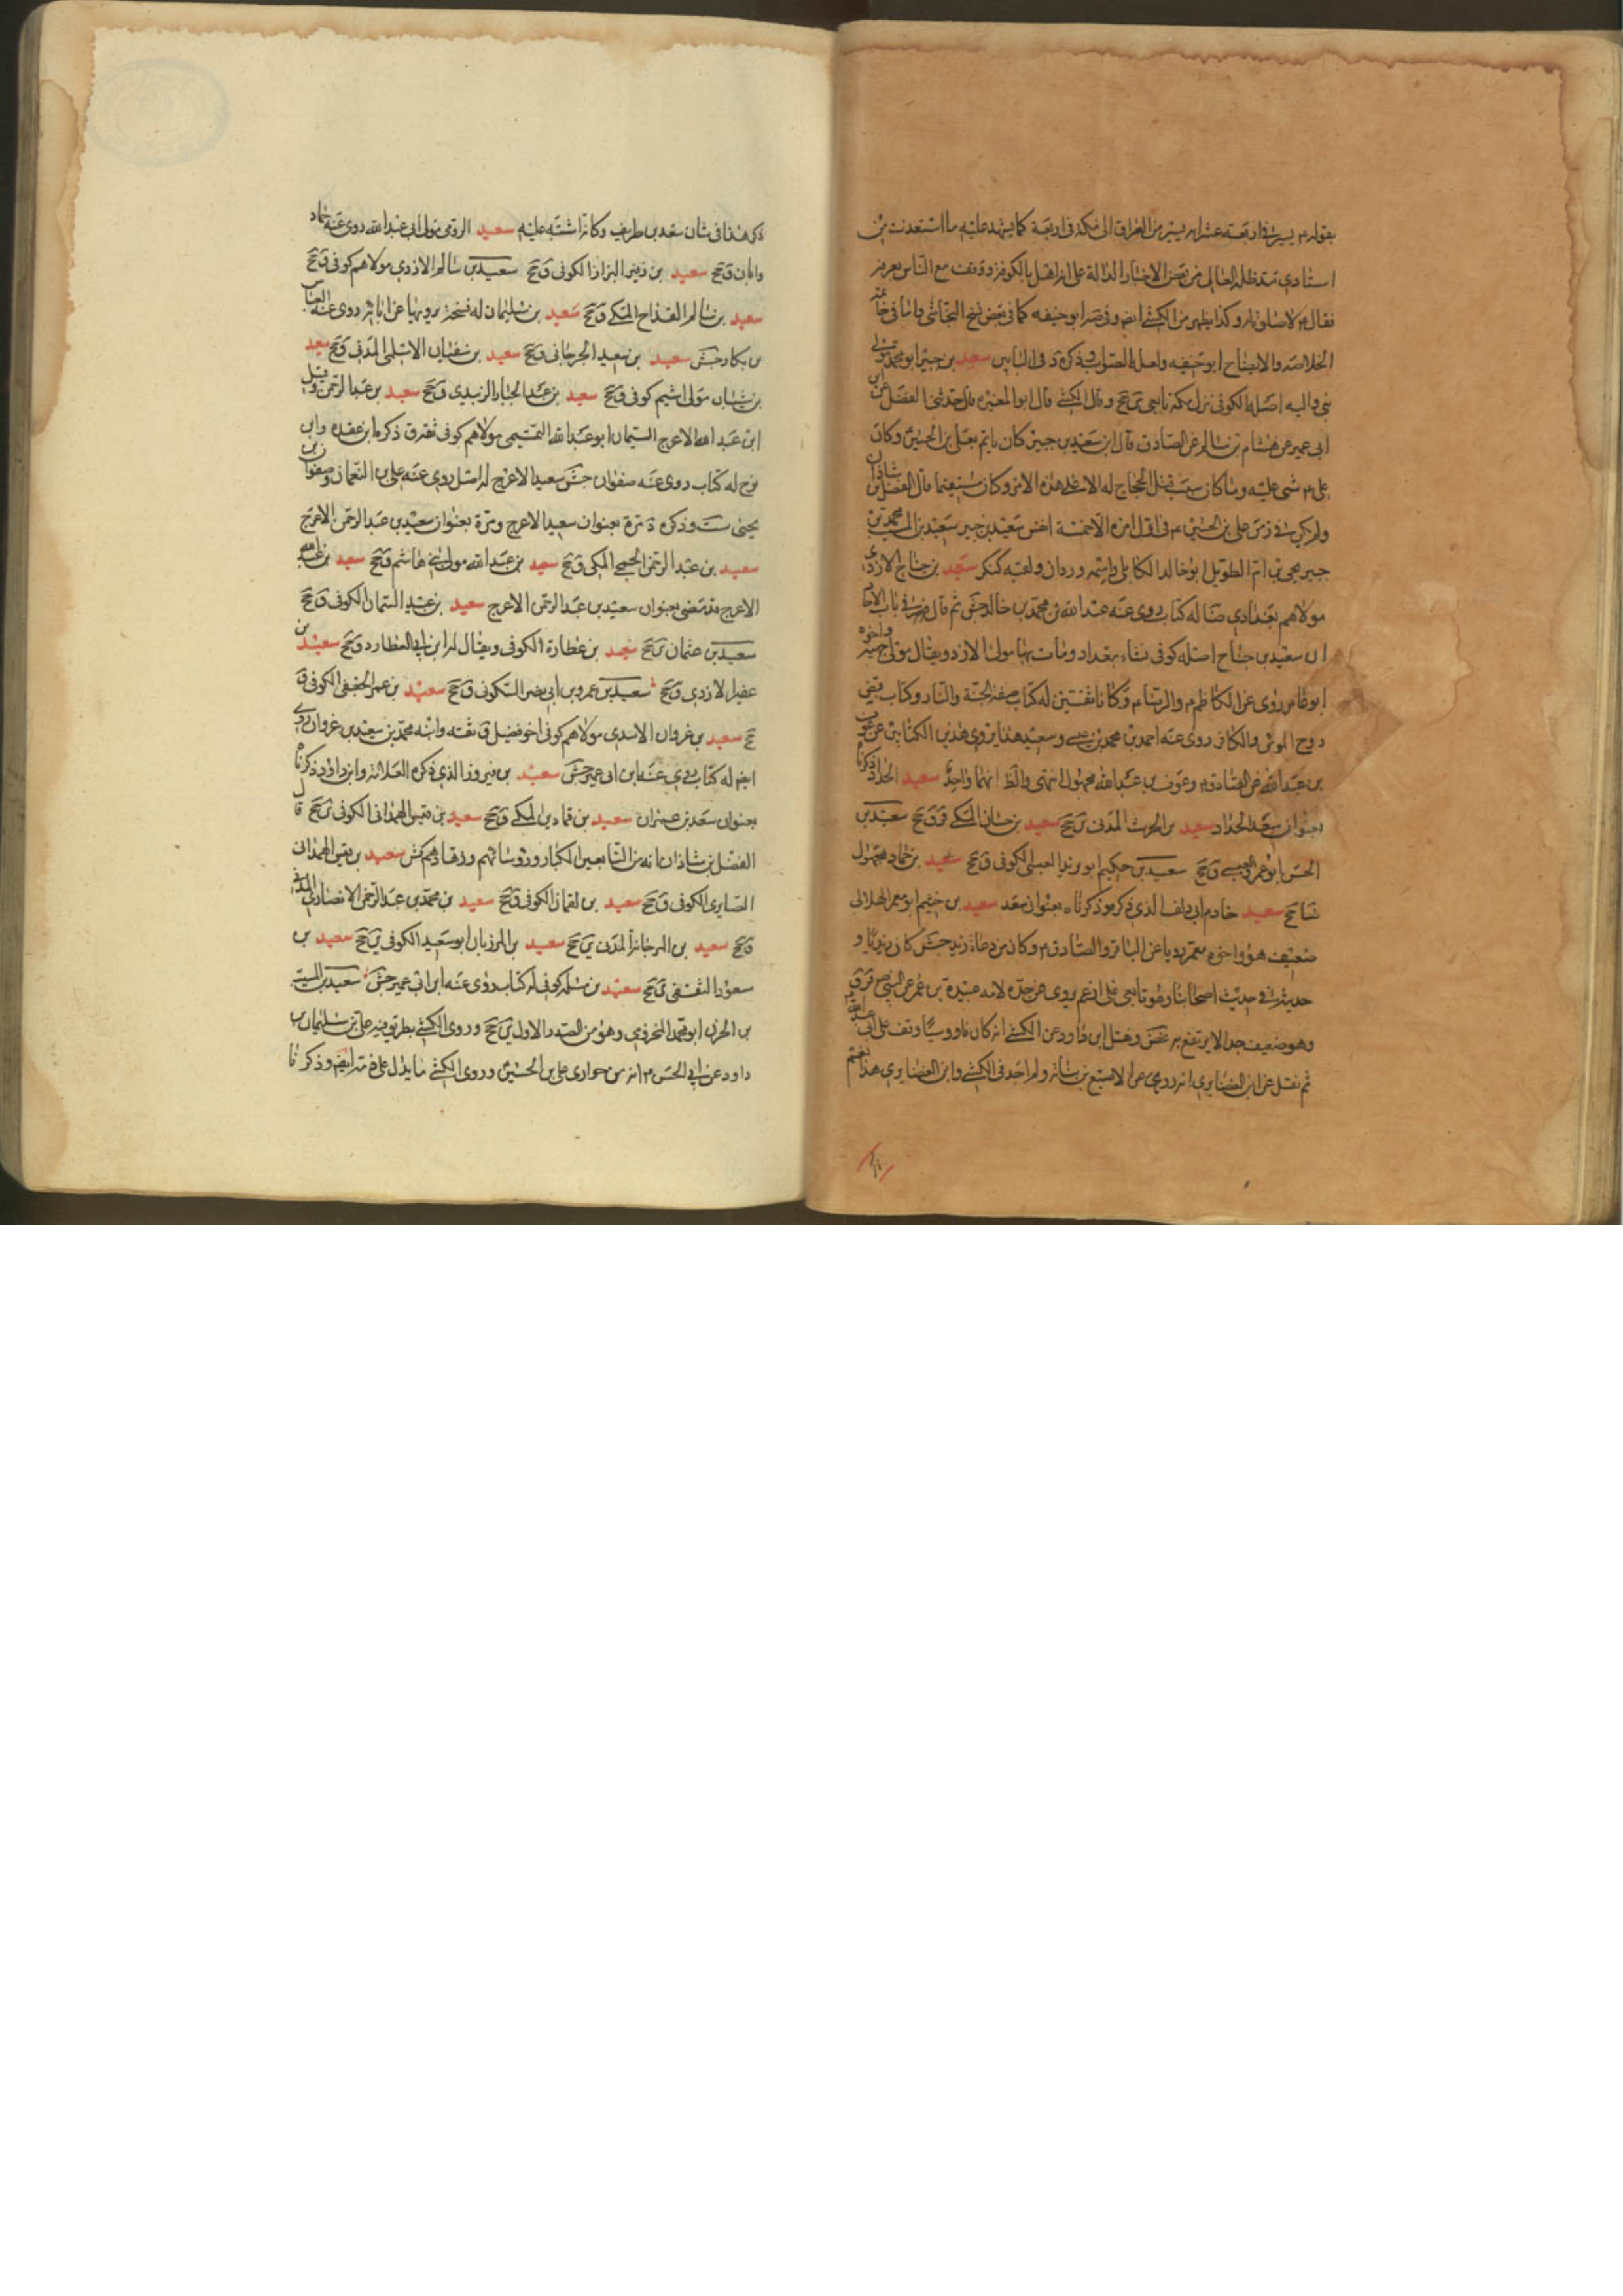 بقوله م يسير في اربعة عشر اى يسير من العراق الى مكة في اربعة كما يشهد عليه ما استفدت من
استادي مد ظله العالى من بعض الاخبار الدالة على ان اهل بالكوفة ووقف مع الناس بعرفة
فقال لا صلوة له وكذا يظهر من الكشى ايضا وفى ابو حنيفه كما في بعض نسخ النجاشى واما في خاتمة
الخلاصه والايضاح ابو حنيفه ولعله الصواب وذكره د فى البابين سعيد بن جبير ابو محمد مولى
بنى والبه اصله الكوفى نزل مكة تابعى ين جخ وقال الكشى قال ابو المغيرة قال حدثنى الفضل عن ابن
ابى عمير عن هشام بن سالم عن الصادق قال ان سعيد بن جبير كان ياتم بعلى بن الحسين وكان
على م يثنى عليه وما كان سبب قتل الحجاج له الا على هذا الامر وكان مستقيما قال الفضل بن شاذان
ولم يكن في زمن على بن الحسين م فى اول امره الا خمسة انفس سعيد بن جبير سعيد بن المسيب محمد بن
جبير يحيى بن ام الطويل ابو خالد الكابلى واسمه وردان ولقبه كنكر سعيد بن جناح الازدى
مولاهم بغدادي ضا له كتاب روى عنه عبد الله بن محمد بن خالد جش ثم قال في باب الاحاد
ان سعيد بن جناح اصله كوفى نشاء ببغداد ومات بها مولى الازد ويقال مولى جهينه واخوه
ابو عامر روى عن الكاظم م والرضا م وكانا ثقتين له كتاب صفة الجنة والنار وكتاب قبض
روح المومن والكافر روى عنه احمد بن محمد بن عيسى وسعيد هذا يروى هذين الكتابين عن عوف
بن عبد الله عن الصادق م وعوف بن عبد الله مجهول انتهى والظ انهما واحد سعيد الحداد ذكرنا
بعنوان سعد الحداد سعيد بن الحرث المدنى ين جخ سعيد بن حسان المكى ق جخ سعيد بن
الحسن ابو عمرو العبسى ق جخ سعيد بن حكيم ابو زيد العبسى الكوفى ق جخ سعيد بن حماد مجهول
ضا جخ سعيد خادم ابى دلف الذى ذكره ذكرناه بعنوان سعد سعيد بن خيثم ابو معمر الهلالى
ضعيف هو واخوه معمر رويا عن الباقر والصادق م وكان من دعاة زيد جش كان زيديا و
حديثه في حديث اصحابنا وهو تابعى على ما زعم يروى عن جده لامه عبيدة بن عمر عن النبى ص
وهو ضعيف جدا لا يرتفع به غض ونقل ابن داود عن الكشى انه كان ناووسيا وقف على ابى عبد الله
ثم نقل عن ابن الغضايرى انه روى عن الاصبغ بن نباته ولم اجد فى الكشى وابن الغضايرى هذا نعم
ذكر هذا فى شان سعد بن طريف وكانه اشتبه عليه سعيد الرومى مولى ابى عبد الله روى عنه حماد
وابان ق جخ سعيد بن زنبر البزاز الكوفى ق جخ سعيد بن سالم الازدى مولاهم كوفى ق جخ
سعيد بن سالم القداح المكى ق جخ سعيد بن سليمان له نسخة يرويها عن ابائه روى عنه العباس
بن بكار جش سعيد بن سعيد الجرجانى ق جخ سعيد بن سفيان الاسلمى المدنى ق جخ سعيد
بن شيبان مولى اشيم كوفى ق جخ سعيد بن عبد الجبار الزبيدى ق جخ سعيد بن عبد الرحمن وقيل
ابن عبد الله الاعرج السمان ابو عبد الله التميمى مولاهم كوفى ثقة ق ذكره ابن عقده وابن
نوح له كتاب روى عنه صفوان جش سعيد الاعرج له اصل روى عنه على بن النعمان وصفوان بن
يحيى ست وذكره د مرة بعنوان سعيد الاعرج ومرة بعنوان سعيد بن عبد الرحمن الاعرج
سعيد بن عبد الرحمن الجمحى المكى ق جخ سعيد بن عبد الله مولى بنى هاشم ق جخ سعيد بن عبد الله
الاعرج قد مضى بعنوان سعيد بن عبد الرحمن الاعرج سعيد بن عبيد السمان الكوفى ق جخ
سعيد بن عثمان ين جخ سعيد بن عطارد الكوفى ويقال له ابن ابى العطارد ق جخ سعيد بن
عفير الازدى ق جخ سعيد بن عمرو بن ابى نصر السكونى ق جخ سعيد بن عمر الجعفى الكوفى ق
جخ سعيد بن غزوان الاسدى مولاهم كوفى اخو فضيل ق ثقه وابنه محمد بن سعيد بن غزوان روى
ايضا له كتاب روى عنه ابن ابى عمير جش سعيد بن فيروز الذى ذكره العلامة وابن داود ذكرنا
بعنوان سعد بن عمران سعيد بن قمادين المكى ق جخ سعيد بن قيس الهمدانى الكوفى ى جخ قال
الفضل بن شاذان انه من التابعين الكبار وروسائهم وزهادهم كش سعيد بن قيس الهمدانى
الصايدى الكوفى ق جخ سعيد بن لقمان الكوفى ق جخ سعيد بن محمد بن عبد الرحمن الانصارى المدنى
ق جخ سعيد بن المرجانة المدنى ين جخ سعيد بن المرزبان ابو سعيد الكوفى ين جخ سعيد بن
مسعود الثقفى ى جخ سعيد بن مسلمه كوفى له كتاب روى عنه ابن ابى عمير جش سعيد بن المسيب
بن الحزن ابو محمد المخزومى وهو من الصدر الاول ين جخ وروى الكشى بطريق فيه على بن سليمان بن
داود عن ابى الحسن م انه من حوارى على بن الحسين وروى الكشى ما يدل على ذمه ايضا وذكرنا